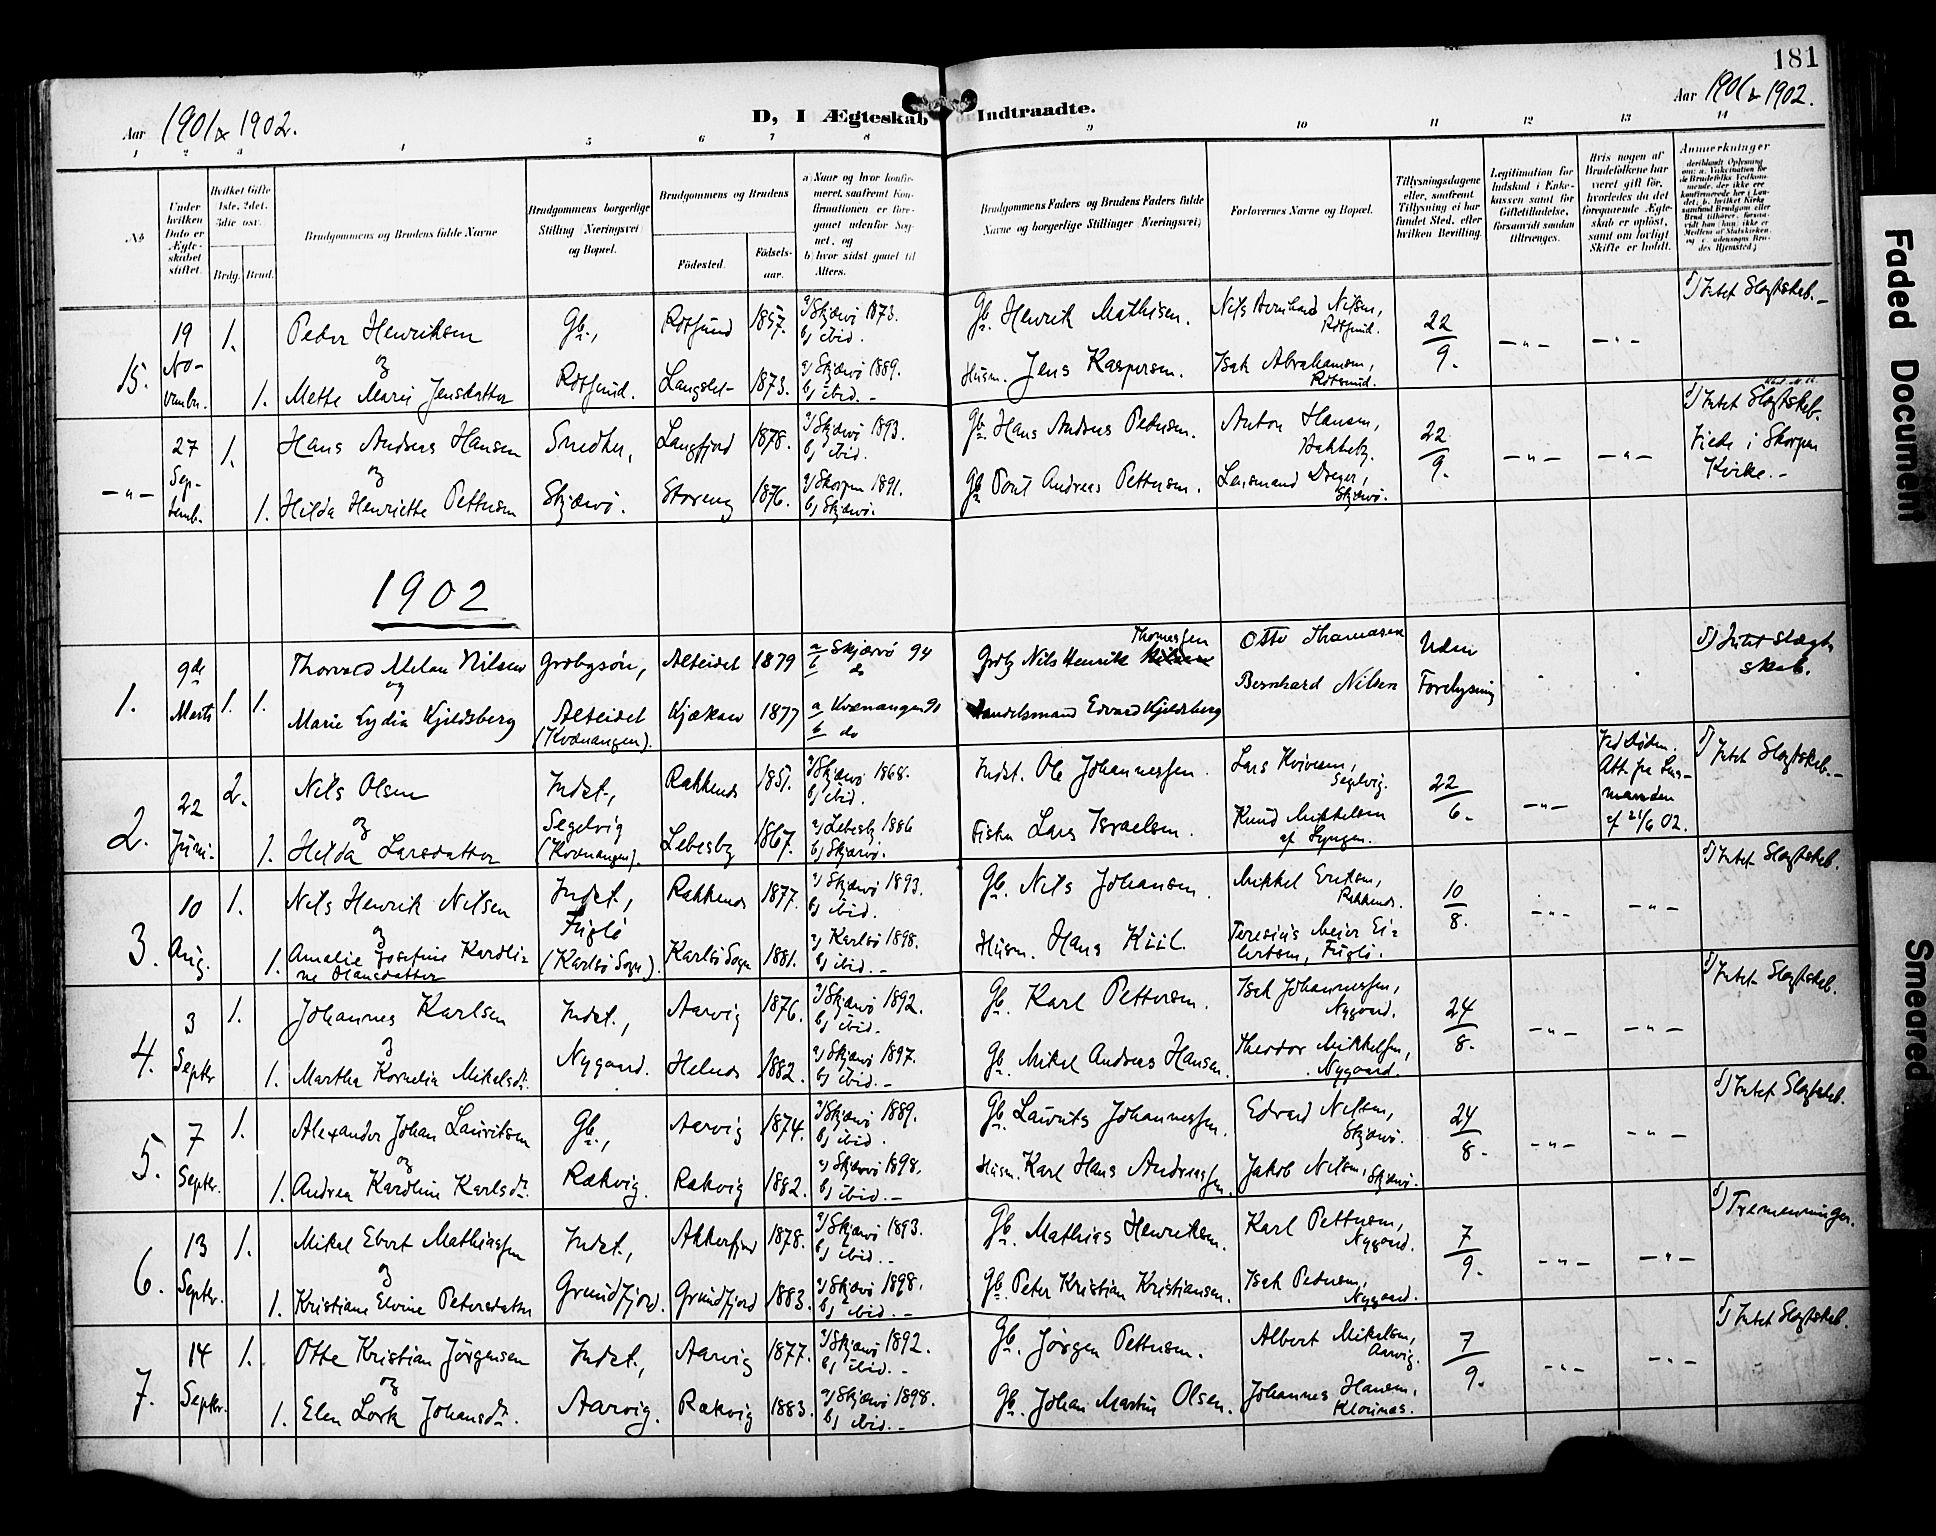 181
Aar 1901 & 1902.
D, I Ægteskab Indtraadte.
Aar 1901 & 1902.
1 2 3 4 5 6 7 8 9 10 11 12 13 14
No
Under hvilken Dato er Ægteskabet stiftet.
Hvilket Gifte 1ste, 2det, 3die osv.
Brdg. Brud.
Brudgommens og Brudens fulde Navne
Brudgommens borgerlige Stilling (Næringsvei) og Bopæl.
Brudgommens og Brudens
Fødested.
Fødselsaar.
a) Naar og hvor konfirmeret, saafremt Konfirmationen er foregaaet udenfor Sognet, og
b) hvor sidst gaaet til Alters.
Brudgommens Faders og Brudens Faders fulde Navne og borgerlige Stillinger (Næringsvei)
Forlovernes Navne og Bopæl.
Tillysningsdagene eller, saafremt Tillysning ei har fundet Sted, efter hvilken Bevilling.
Legitimation for Indskud i Enkekassen samt for Giftetilladelse, forsaavidt saadan tiltrænges.
Hvis nogen af Brudefolkene har været gift før, hvorledes da det foregaaende Ægteskab er opløst, samt om lovligt Skifte er holdt.
Anmerkninger
15. 19 November 1. Peder Henriksen Gb., Rotsund 1857. a) Skjærvø 1873. b) ibid. Gb. Henrik Mathisen. Nils Bernhard Nilsen, Rotsund. 22/9. —"— —"— Intet Slægtskab.
og
1. Mette Marie Jensdatter Rotsund. Langslet 1873. a) Skjærvø 1889. b) ibid. Husm. Jens Kaspersen. Isak Abrahamsen, Rotsund.
—"— 27 Septemb. 1. Hans Andreas Hansen Snedker, Langfjord 1878. a) Skjærvø 1893. b) ibid. Gb. Hans Andreas Pedersen. Anton Hansen, Hakkeby. 22/9. —"— —"— Intet Slægtskab. Viede i Skorpen Kirke.
og
1. Hilda Henriette Pettersen Skjærvø. Storeng 1876. a) Skorpen 1891. b) Skjærvø. Gb. Andreas Pettersen. Lensmand Dreyer, Skjærvø.
1902
1. 9de Marts 1. 1. Thorvald Milan Nilsen Grdbgsøn, Alteidet 1879 a Skjærvø 94 b do Grdbg Nils Henrik Thomassen Otto Thomasen Uden Forelysning Intet Slægtskab.
og
Marie Lydia Kjeldsberg Alteidet (Kvænangen). Kjækan 1877 a Kvænangen 90 b do Handelsmand Edvard Kjeldsberg Bernhard Nilsen
2. 22 Juni 2. Nils Olsen Indst., Rakkenes 1851. a) Skjærvø 1868. b) ibid. Indst. Ole Johannessen. Lars Kviveen, Segelvig. 22/6. —"— Ved Døden. Att. fra Lensmanden af 21/6 02. Intet Slægtskab.
og
1. Hilda Larsdatter Segelvig (Kvænangen). Lebesby 1867. a) Lebesby 1886 b) Skjærvø. Fisker Lars Israelsen. Knud Mikkelsen af Lyngen.
3. 10 Aug. 1. Nils Henrik Nilsen Indst., Rakkenes 1877. a) Skjærvø 1893. b) ibid. Gb. Nils Johansen. Mikkel Eriksen, Rakkenes. 10/8. —"— —"— Intet Slægtskab.
og
1. Amalie Josefine Karoline Hansdatter Fuglø (Karlsø Sogn). Karlsø Sogn 1881. a) Karlsø 1898. b) ibid. Husm. Hans Kiil. Teresius Meier Eilertsen, Fuglø.
4. 3 Septbr 1. Johannes Karlsen Indst., Aarvig 1876. a) Skjærvø 1892. b) ibid. Gb. Karl Pettersen. Isak Johannessen, Nygaard. 24/8. —"— —"— Intet Slægtskab.
og
1. Martha Kornelia Mikelsdr. Nygaard. Helnes 1882. a) Skjærvø 1897. b) ibid. Gb. Mikel Andreas Hansen. Theodor Mikkelsen, Nygaard.
5. 7 Septbr. 1. Alexander Johan Lauritsen Gb., Aarvig 1874. a) Skjærvø 1889. b) ibid. Gb. Laurits Johannessen. Edvard Nilsen, Skjærvø. 24/8. —"— —"— Intet Slægtskab.
og
1. Andrea Karoline Karlsdr. Rakvig. Rakvig 1882. a) Skjærvø 1898. b) ibid. Husm. Karl Hans Andreassen. Jakob Nilsen, Skjærvø.
6. 13 Septbr. 1. Mikel Ebert Mathiassen Indst., Akkerfjord 1878. a) Skjærvø 1893. b) ibid. Gb. Mathias Henriksen. Karl Pettersen, Nygaard. 7/9. —"— —"— Tremenninger.
og
1. Kristiane Elvine Petersdatter Grundfjord. Grundfjord 1883. a) Skjærvø 1898. b) ibid. Gb. Peter Kristian Kristiansen. Isak Pedersen, Nygaard.
7. 14 Septbr. 1. Otto Kristian Jørgensen Indst., Aarvig 1877. a) Skjærvø 1892. b) ibid. Gb. Jørgen Pettersen. Albert Mikelsen, Aarvig. 7/9. —"— —"— Intet Slægtskab.
og
1. Elen Lork Johansdr. Aarvig. Rakvig 1883. a) Skjærvø 1898. b) ibid. Gb. Johan Martin Olsen. Johannes Hansen, Klovnes.
Faded Document
Smeared